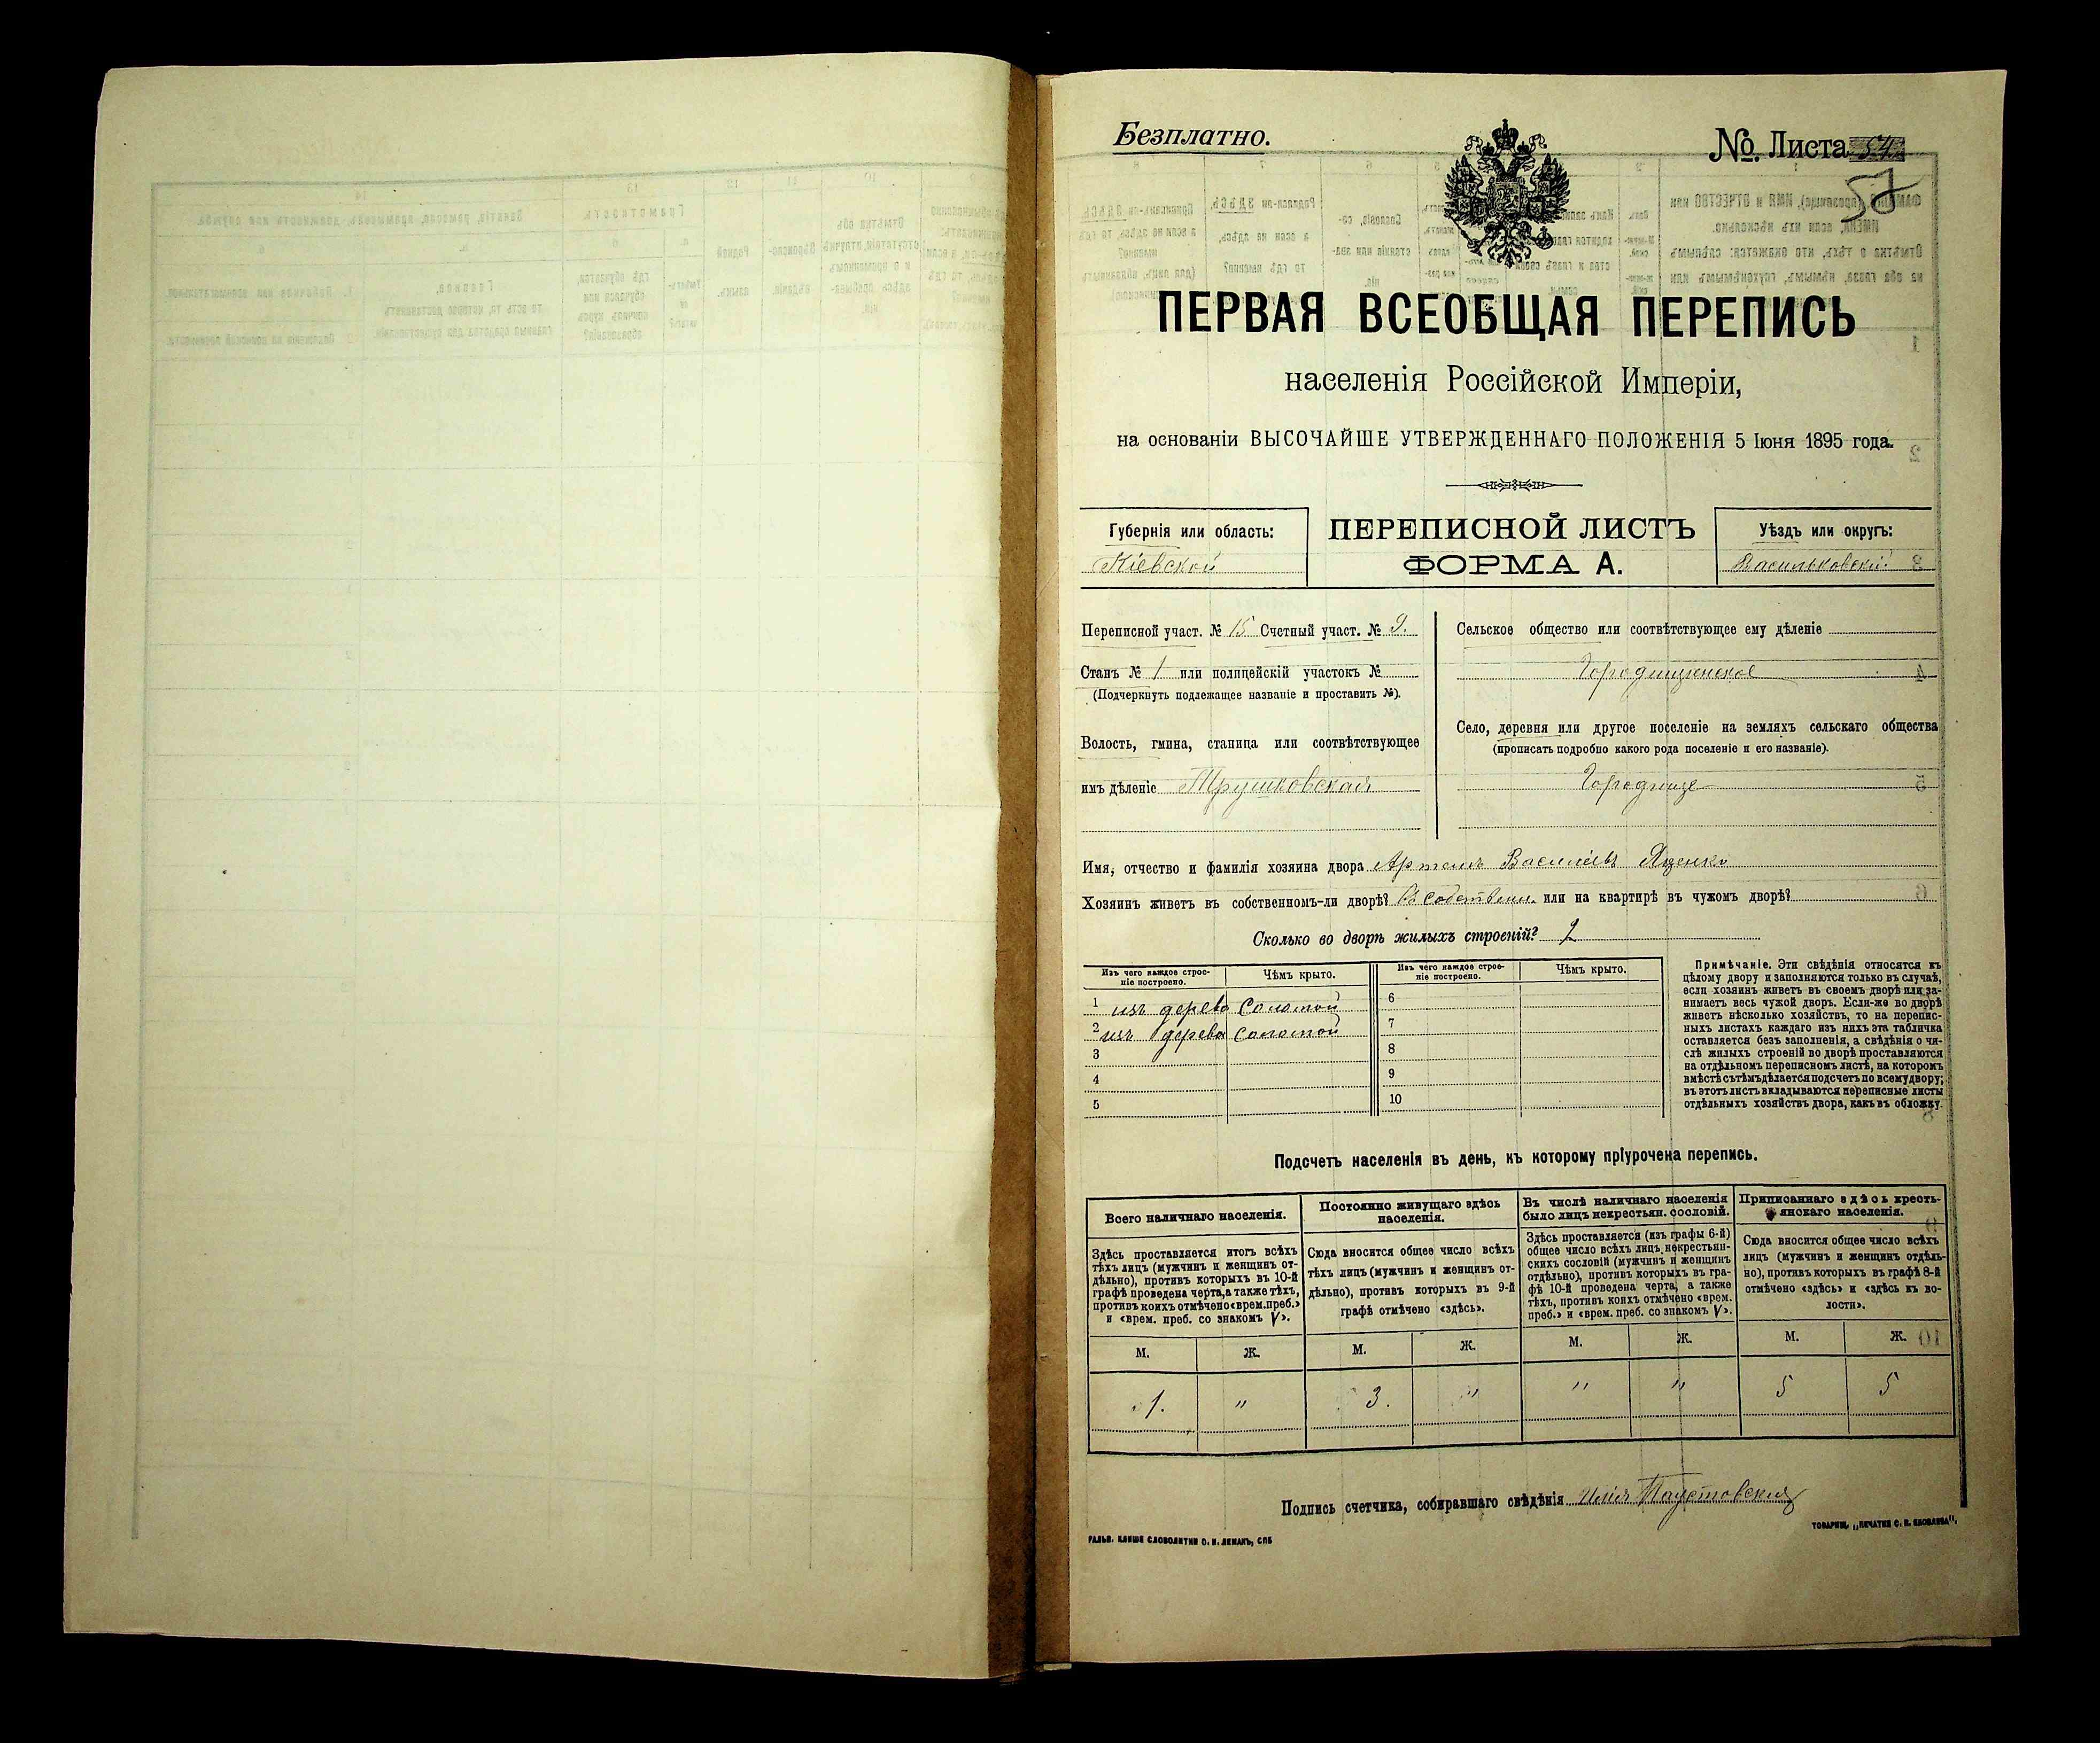 Безплатно.
№. Листа 54
ПЕРВАЯ ВСЕОБЩАЯ ПЕРЕПИСЬ
населенія Россійской Имперіи,
на основаніи ВЫСОЧАЙШЕ УТВЕРЖДЕННАГО ПОЛОЖЕНІЯ 5 Іюня 1895 года.
Губернія или область:
Кіевской
ПЕРЕПИСНОЙ ЛИСТЪ
ФОРМА А.
Уѣздъ или округъ:
Васильковскій
Переписной участ. № 15 Счетный участ. № 9.
Станъ № 1 или полицейскій участокъ №
(Подчеркнуть подлежащее названіе и проставить №).
Волость, гмина, станица или соотвѣтствующее
имъ дѣленіе Трушковская
Сельское общество или соотвѣтствующее ему дѣленіе
Городищенское
Село, деревня или другое поселеніе на земляхъ сельскаго общества
(прописать подробно какого рода поселеніе и его названіе).
Городище
Имя, отчество и фамилія хозяина двора Артемъ Васильевъ Яценко
Хозяинъ живетъ въ собственномъ-ли дворѣ? Въ собственн. или на квартирѣ въ чужомъ дворѣ?
Сколько во дворѣ жилыхъ строеній? 2
Изъ чего каждое строе-
ніе построено.
Чѣмъ крыто.
1 изъ дерева Соломой
2 изъ дерева соломой
3
4
5
Изъ чего каждое строе-
ніе построено.
Чѣмъ крыто.
6
7
8
9
10
Примѣчаніе. Эти свѣдѣнія относятся къ
цѣлому двору и заполняются только въ случаѣ,
если хозяинъ живетъ въ своемъ дворѣ или за-
нимаетъ весь чужой дворъ. Если-же во дворѣ
живетъ нѣсколько хозяйствъ, то на перепис-
ныхъ листахъ каждаго изъ нихъ эта табличка
оставляется безъ заполненія, а свѣдѣнія о чи-
слѣ жилыхъ строеній во дворѣ проставляются
на отдѣльномъ переписномъ листѣ, на которомъ
вмѣстѣ съ тѣмъ дѣлается подсчетъ по всему двору;
въ этотъ листъ вкладываются переписные листы
отдѣльныхъ хозяйствъ двора, какъ въ обложку.
Подсчетъ населенія въ день, къ которому пріурочена перепись.
Всего наличнаго населенія.
Здѣсь проставляется итогъ всѣхъ
тѣхъ лицъ (мужчинъ и женщинъ от-
дѣльно), противъ которыхъ въ 10-й
графѣ проведена черта, а также тѣхъ,
противъ коихъ отмѣчено «врем. преб.»
и «врем. преб. со знакомъ V».
М. Ж.
1. "
Постоянно живущаго здѣсь
населенія.
Сюда вносится общее число всѣхъ
тѣхъ лицъ (мужчинъ и женщинъ от-
дѣльно), противъ которыхъ въ 9-й
графѣ отмѣчено «здѣсь».
М. Ж.
3. "
Въ числѣ наличнаго населенія
было лицъ некрестьян. сословій.
Здѣсь проставляется (изъ графы 6-й)
общее число всѣхъ лицъ некрестьян-
скихъ сословій (мужчинъ и женщинъ
отдѣльно), противъ которыхъ въ гра-
фѣ 10-й проведена черта, а также
тѣхъ, противъ коихъ отмѣчено «врем.
преб.» и «врем. преб. со знакомъ V».
М. Ж.
" "
Приписаннаго здѣсь кресть-
янскаго населенія.
Сюда вносится общее число всѣхъ
лицъ (мужчинъ и женщинъ отдѣль-
но), противъ которыхъ въ графѣ 8-й
отмѣчено «здѣсь» и «здѣсь къ во-
лости».
М. Ж.
5 5
Подпись счетчика, собиравшаго свѣдѣнія Илія Паустовскій
ГАЛЬВ. КЛИШЕ СЛОВОЛИТНИ О. И. ЛЕМАНЪ, СПБ
ТОВАРИЩ. „ПЕЧАТНЯ С. П. ЯКОВЛЕВА".